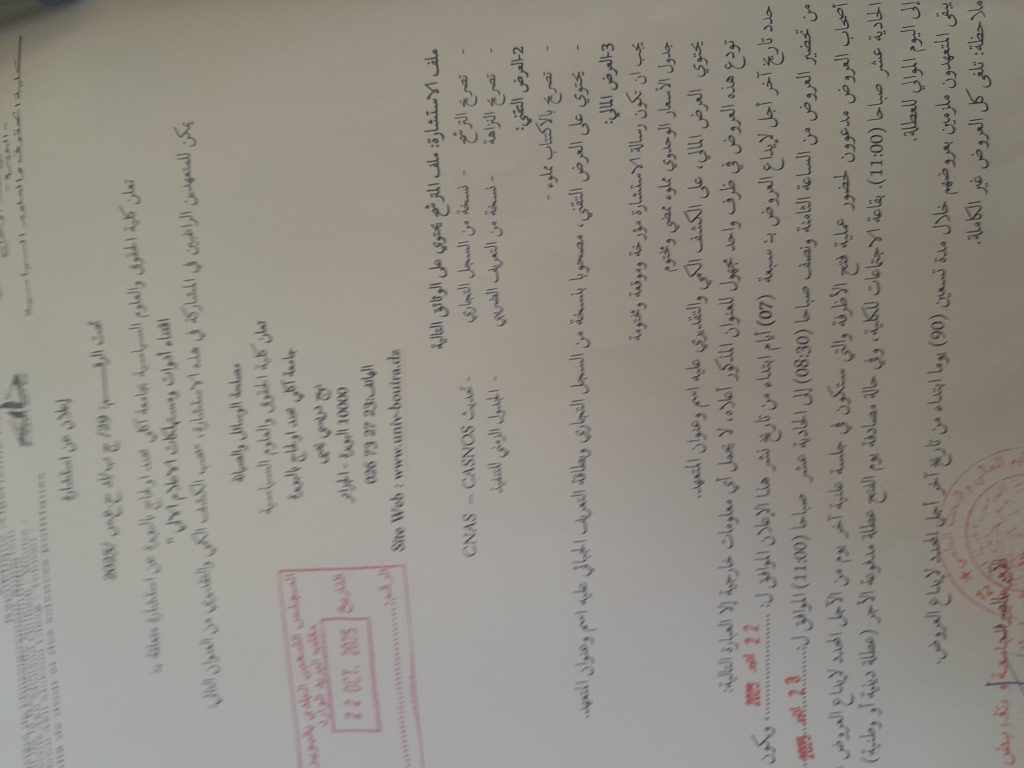 إعلان عن استشارة
تحت الرقم 39/ /2025
تعلن كلية الحقوق والعلوم السياسية بجامعة أكلي محند اولحاج بالبويرة عن استشارة متعلقة بـ
" اقتناء أدوات ومستهلكات الاعلام الآلي "
يمكن للمتعهدين الراغبين في المشاركة في هذه الاستشارة، سحب الكشف الكمي والتقديري من العنوان التالي
مصلحة الوسائل والصيانة
كلية الحقوق والعلوم السياسية
جامعة أكلي محند اولحاج بالبويرة
نهج دريسي يحي
10000 البويرة - الجزائر
الهاتف: 026 73 27 23
Site Web : www.univ-bouira.dz
المجلس الشعبي البلدي بالبويرة
التاريخ
22 OCT. 2025
الرقم:
ملف الاستشارة: ملف المترشح يحتوي على الوثائق التالية
- تصريح الترشح - نسخة من السجل التجاري - تحديث CNAS – CASNOS
- تصريح النزاهة - نسخة من التعريف الضريبي - الجدول الزمني للتنفيذ
2-العرض التقني:
- تصريح بالاكتتاب مملوء -
- يحتوي على العرض التقني، مصحوبا بنسخة من السجل التجاري وبطاقة التعريف الجبائي عليه اسم وعنوان المتعهد.
3-العرض المالي:
يجب ان تكون رسالة الاستشارة مؤرخة وموقعة ومختومة
جدول الأسعار الوحدوي مملوء ممضي ومختوم
يحتوي العرض المالي على الكشف الكمي والتقديري عليه اسم وعنوان المتعهد.
تودع هذه العروض في ظرف واحد مجهول للعنوان المذكور أعلاه، لا يحمل أي معلومات خارجية إلا العبارة التالية:
حدد تاريخ آخر أجل لايداع العروض بـ سبعة (07) أيام ابتداء من تاريخ نشر هذا الإعلان الموافق لـ: 22 2025 ويكون
من تحضير العروض من الساعة الثامنة ونصف صباحا (08:30) إلى الحادية عشر صباحا (11:00) الموافق لـ: 28 2025
أصحاب العروض مدعوون لحضور عملية فتح الأظرفة والتي ستكون في جلسة علنية آخر يوم من الآجل المحدد لايداع العروض
الحادية عشر صباحا (11:00)، بقاعة الاجتماعات للكلية، وفي حالة مصادفة يوم الفتح عطلة مدفوعة الأجر (عطلة دينية أو وطنية)
إلى اليوم الموالي للعطلة.
يبقى المتعهدون ملزمين بعروضهم خلال مدة تسعين (90) يوما ابتداء من تاريخ آخر أجل المحدد لايداع العروض.
ملاحظة: تلغى كل العروض غير الكاملة.